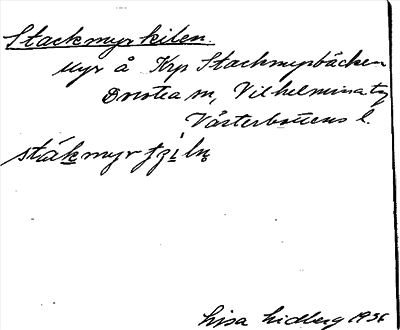 Stackmyrkilen.
Myr å Krp Stackmyrbäcken
Dorotea sn, Vilhelmina tg
Västerbottens l.
stákmyr
Lisa Lidberg 1936